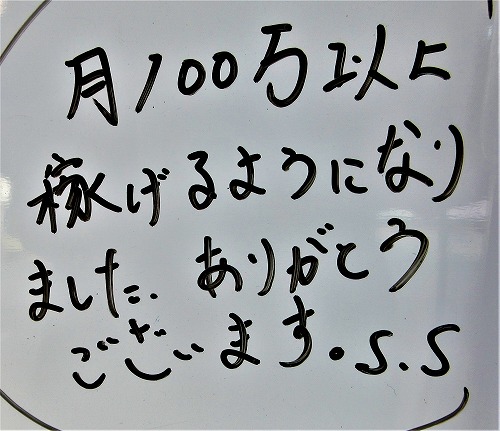 月100万以上
稼げるようになり
ました. ありがとう
ございます。S.S